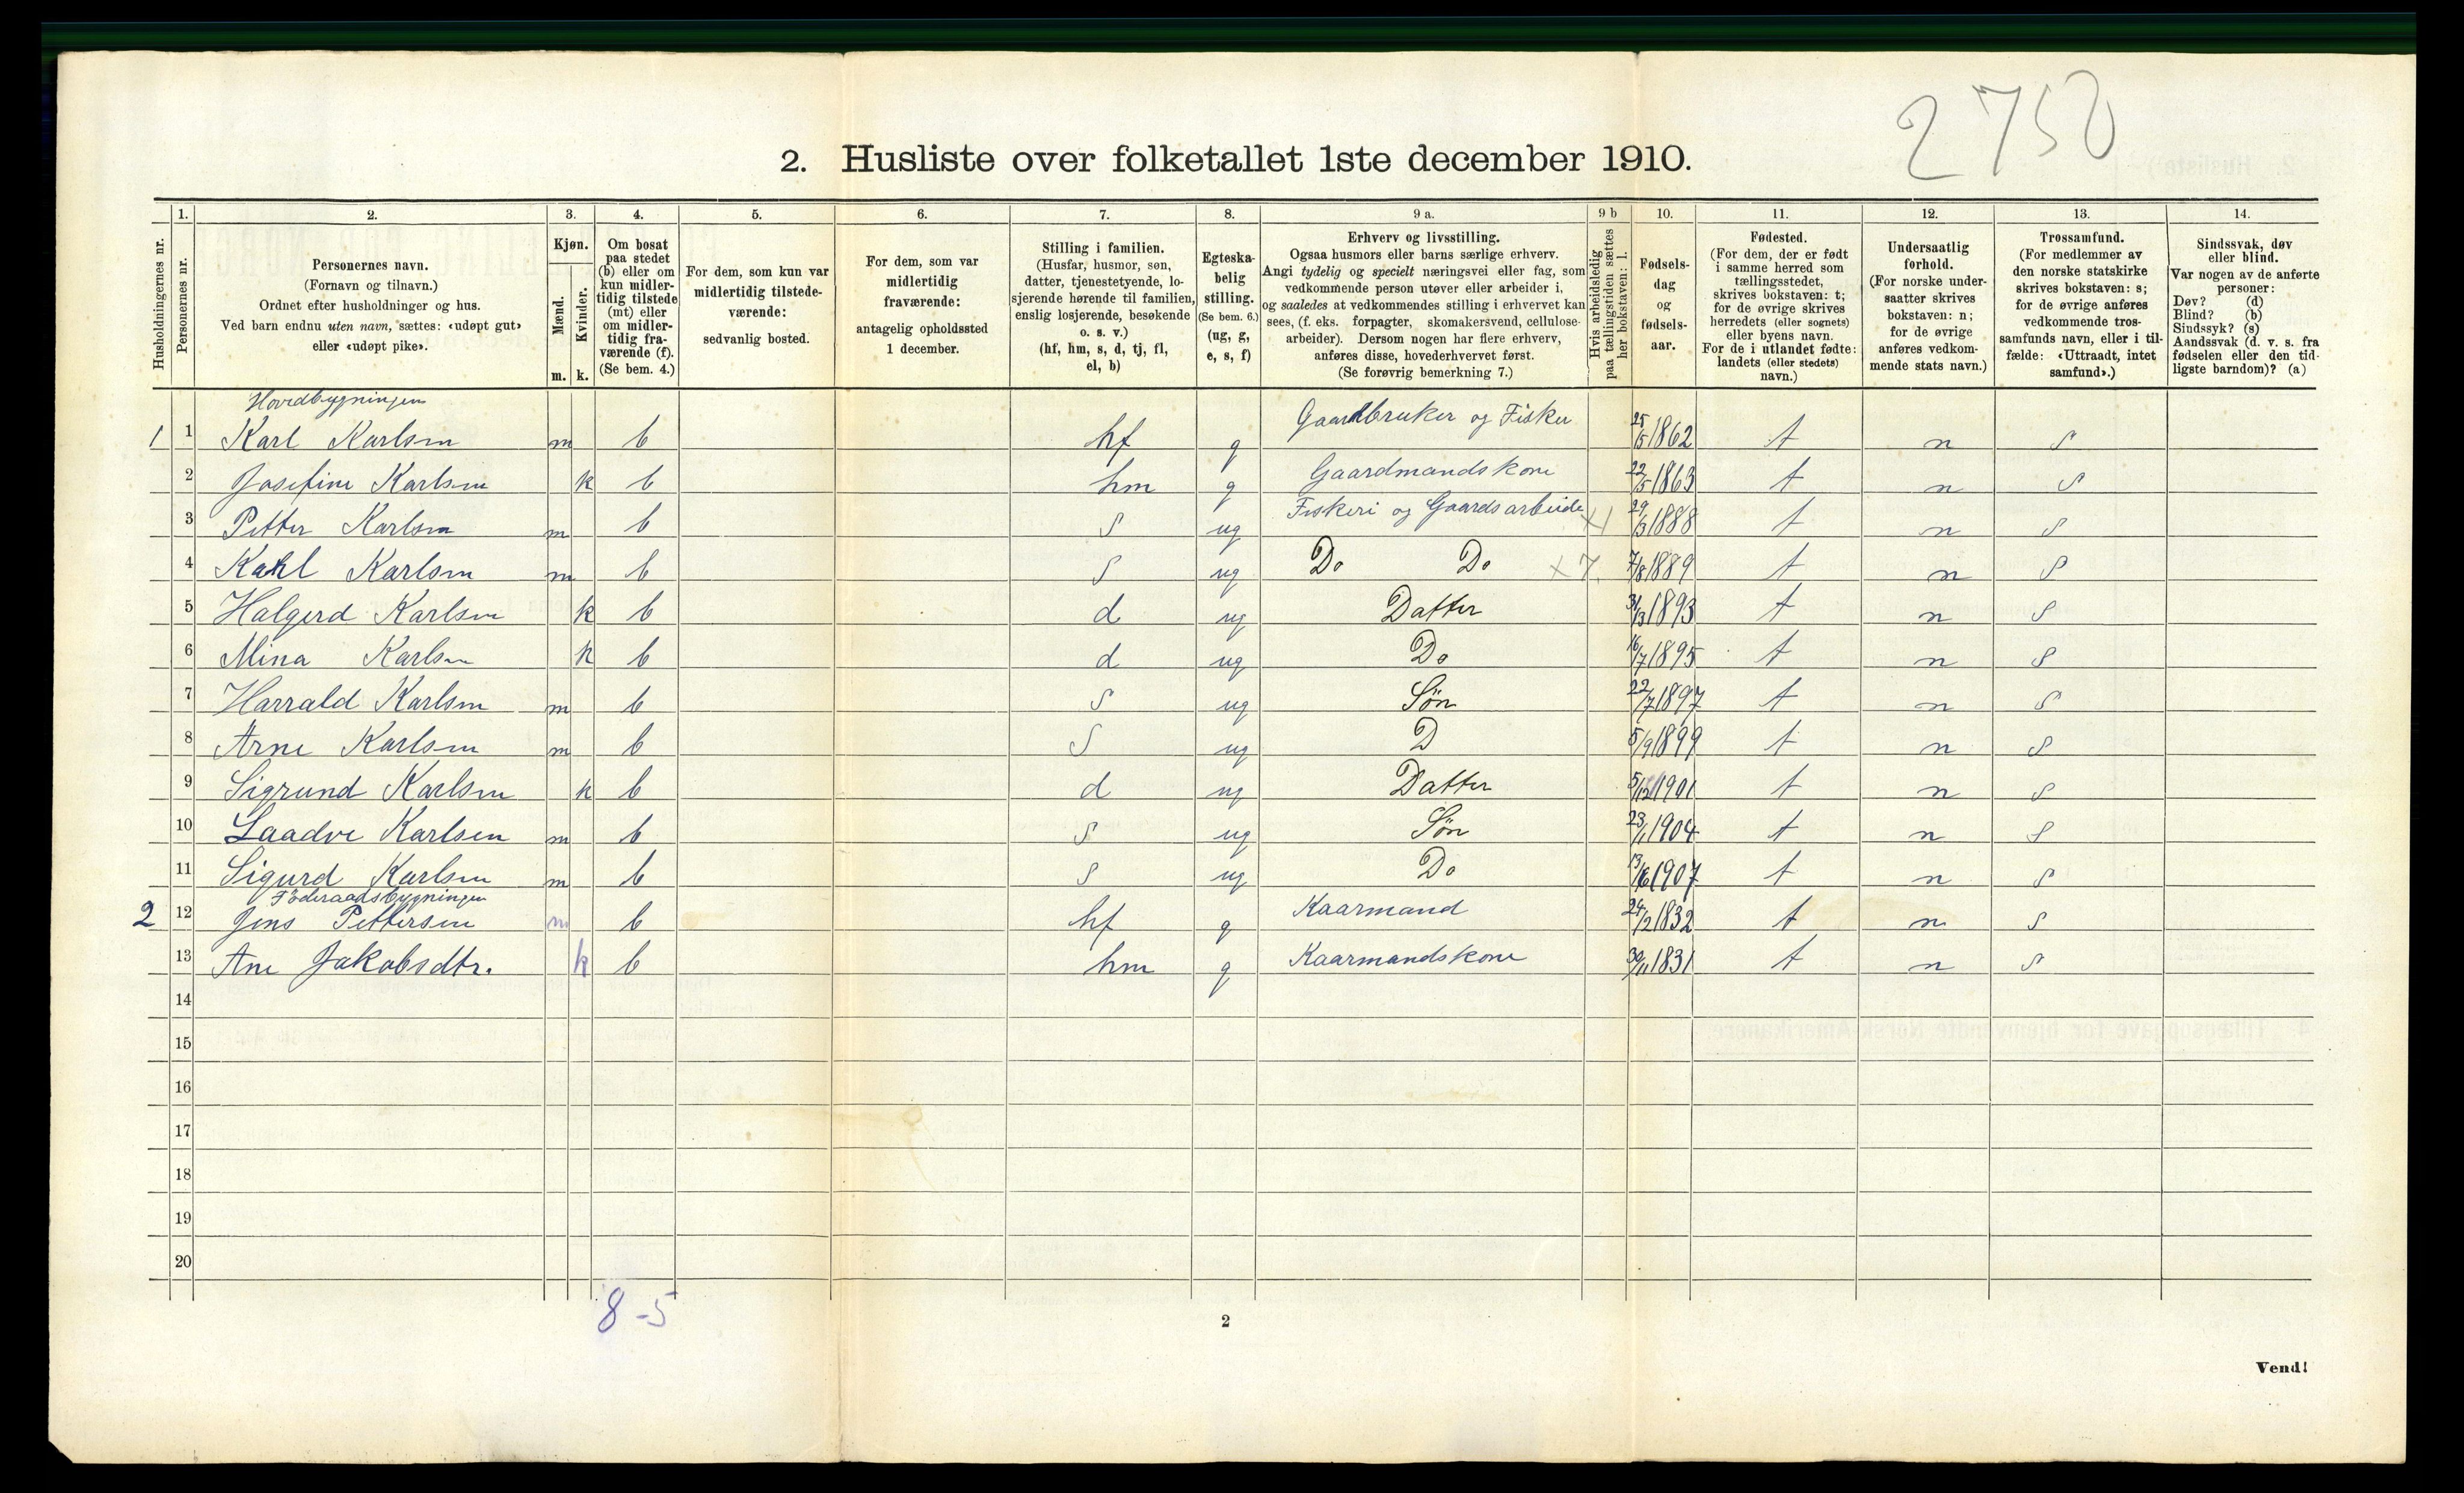 2750
2. Husliste over folketallet 1ste december 1910.
Husholdningernes nr.
1. Personernes nr.
2. Personernes navn. (Fornavn og tilnavn.) Ordnet efter husholdninger og hus. Ved barn endnu uten navn, sættes: «udøpt gut» eller «udøpt pike».
3. Kjøn. Mænd. m. Kvinder. k.
4. Om bosat paa stedet (b) eller om kun midler-tidig tilstede (mt) eller om midler-tidig fra-værende (f). (Se bem. 4.)
5. For dem, som kun var midlertidig tilstede-værende: sedvanlig bosted.
6. For dem, som var midlertidig fraværende: antagelig opholdssted 1 december.
7. Stilling i familien. (Husfar, husmor, søn, datter, tjenestetyende, lo-sjerende hørende til familien, enslig losjerende, besøkende o. s. v.) (hf, hm, s, d, tj, fl, el, b)
8. Egteska-belig stilling. (Se bem. 6.) (ug, g, e, s, f)
9 a. Erhverv og livsstilling. Ogsaa husmors eller barns særlige erhverv. Angi tydelig og specielt næringsvei eller fag, som vedkommende person utøver eller arbeider i, og saaledes at vedkommendes stilling i erhvervet kan sees, (f. eks. forpagter, skomakersvend, cellulose-arbeider). Dersom nogen har flere erhverv, anføres disse, hovederhvervet først. (Se forøvrig bemerkning 7.)
9 b Hvis arbeidsledig paa tællingstiden sættes her bokstaven: l.
10. Fødsels-dag og fødsels-aar.
11. Fødested. (For dem, der er født i samme herred som tællingsstedet, skrives bokstaven: t; for de øvrige skrives herredets (eller sognets) eller byens navn. For de i utlandet fødte: landets (eller stedets) navn.)
12. Undersaatlig forhold. (For norske under-saatter skrives bokstaven: n; for de øvrige anføres vedkom-mende stats navn.)
13. Trossamfund. (For medlemmer av den norske statskirke skrives bokstaven: s; for de øvrige anføres vedkommende tros-samfunds navn, eller i til-fælde: «Uttraadt, intet samfund».)
14. Sindssvak, døv eller blind. Var nogen av de anførte personer: Døv? (d) Blind? (b) Sindssyk? (s) Aandssvak (d. v. s. fra fødselen eller den tid-ligste barndom)? (a)
Hovedbygningen
1 1 Karl Karlsen m b hf g Gaardbruker og Fisker 25/5 1862 t n s
2 Josefine Karlsen k b hm g Gaardmandskone 22/5 1863 t n s
3 Petter Karlsen m b s ug Fiskeri og Gaardsarbeide x1 29/3 1888 t n s
4 Karl Karlsen m b s ug Do Do x7. 7/8 1889 t n s
5 Halgerd Karlsen k b d ug Datter 31/3 1893 t n s
6 Mina Karlsen k b d ug Do 16/7 1895 t n s
7 Harrald Karlsen m b s ug Søn 22/7 1897 t n s
8 Arne Karlsen m b s ug D 5/9 1899 t n s
9 Sigrund Karlsen k b d ug Datter 5/12 1901 t n s
10 Laadve Karlsen m b s ug Søn 23/1 1904 t n s
11 Sigurd Karlsen m b s ug Do 13/6 1907 t n s
Föderaadsbygningen
2 12 Jens Pettersen m b hf g Kaarmand 24/2 1832 t n s
13 Ane Jakobsdtr. k b hm g Kaarmandskone 30/11 1831 t n s
14
15
16
17
18
19
20
8-5
2
Vend!